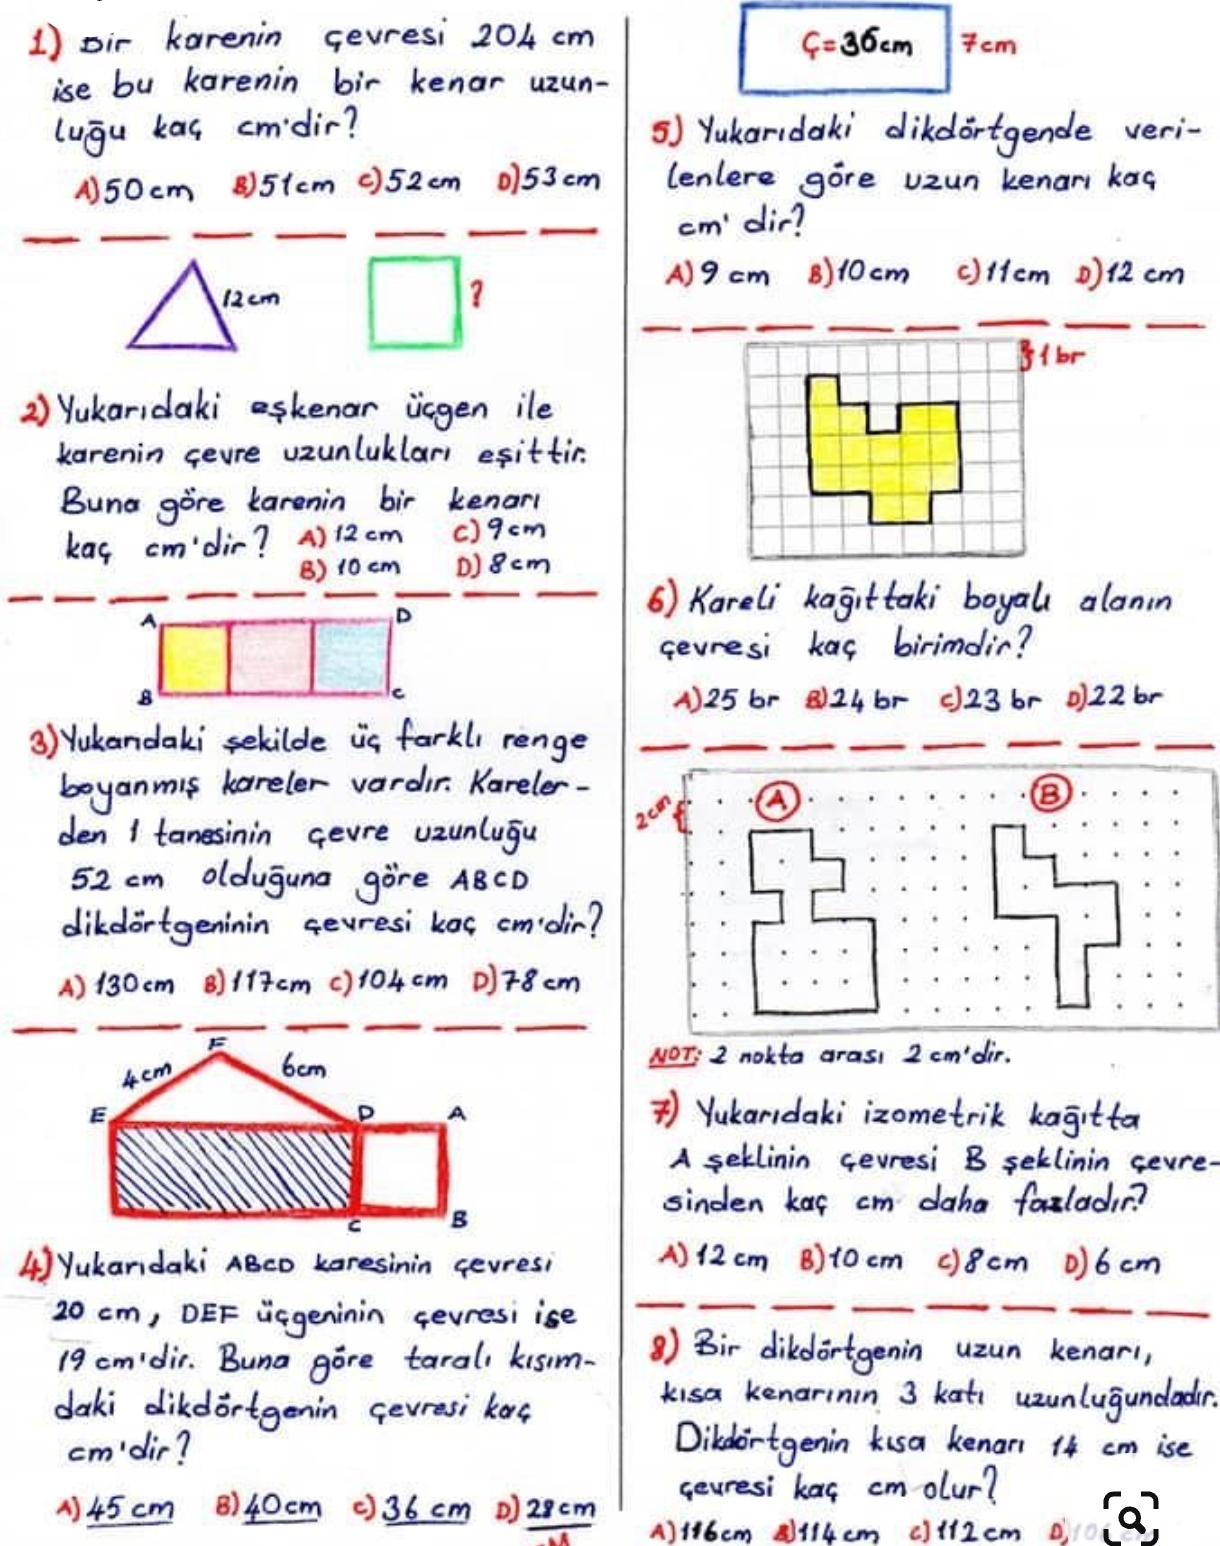 1) Bir karenin çevresi 204 cm
ise bu karenin bir kenar uzun-
luğu kaç cm'dir?
A) 50 cm B) 51 cm C) 52 cm D) 53 cm
12 cm ?
2) Yukarıdaki eşkenar üçgen ile
karenin çevre uzunlukları eşittir.
Buna göre karenin bir kenarı
kaç cm'dir? A) 12 cm C) 9 cm
B) 10 cm D) 8 cm
A D
B C
3) Yukarıdaki şekilde üç farklı renge
boyanmış kareler vardır. Kareler-
den 1 tanesinin çevre uzunluğu
52 cm olduğuna göre ABCD
dikdörtgeninin çevresi kaç cm'dir?
A) 130 cm B) 117 cm C) 104 cm D) 78 cm
F
4 cm 6 cm
E D A
C B
4) Yukarıdaki ABCD karesinin çevresi
20 cm, DEF üçgeninin çevresi ise
19 cm'dir. Buna göre taralı kısım-
daki dikdörtgenin çevresi kaç
cm'dir?
A) 45 cm B) 40 cm C) 36 cm D) 28 cm
Ç=36cm 7cm
5) Yukarıdaki dikdörtgende veri-
lenlere göre uzun kenarı kaç
cm' dir?
A) 9 cm B) 10 cm C) 11 cm D) 12 cm
1 br
6) Kareli kağıttaki boyalı alanın
çevresi kaç birimdir?
A) 25 br B) 24 br C) 23 br D) 22 br
2cm A B
NOT: 2 nokta arası 2 cm'dir.
7) Yukarıdaki izometrik kağıtta
A şeklinin çevresi B şeklinin çevre-
sinden kaç cm daha fazladır?
A) 12 cm B) 10 cm C) 8 cm D) 6 cm
8) Bir dikdörtgenin uzun kenarı,
kısa kenarının 3 katı uzunluğundadır.
Dikdörtgenin kısa kenarı 14 cm ise
çevresi kaç cm olur?
A) 116 cm B) 114 cm C) 112 cm D)